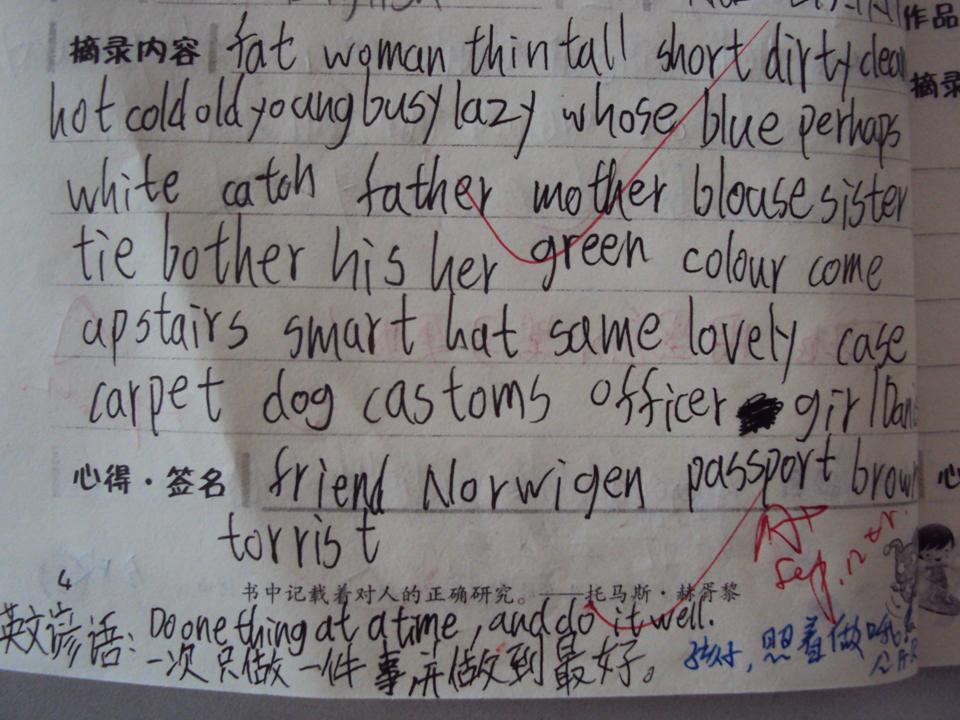 作品
摘录内容 fat woman thin tall short dirty clean
摘录
hot cold old young busy lazy whose blue perhaps
white catch father mother blouse sister
tie bother his her green colour come
apstairs smart hat same lovely case
carpet dog castoms officer girl Dani
心得·签名 friend Norwigen passport brown
心
torrist
A+
Sep. 12
书中记载着对人的正确研究。——托马斯·赫胥黎
4
英文谚语: Do one thing at a time, and do it well.
一次只做一件事,并做到最好。
孩子,照着做哦!